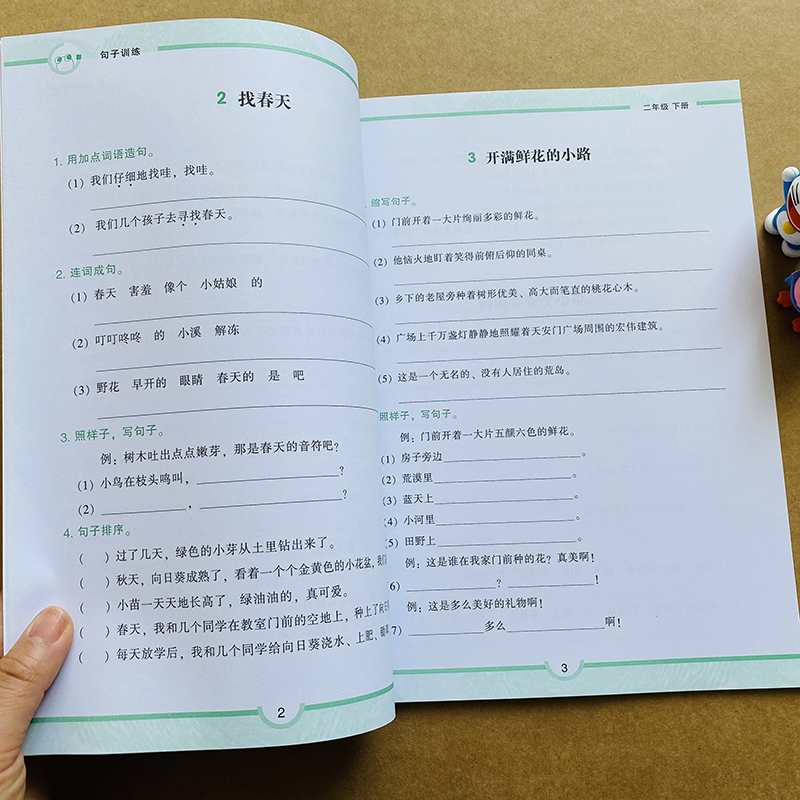 句子训练
2 找春天
1. 用加点词语造句。
(1) 我们仔细地找哇，找哇。
(2) 我们几个孩子去寻找春天。
2. 连词成句。
(1) 春天 害羞 像个 小姑娘 的
(2) 叮叮咚咚 的 小溪 解冻
(3) 野花 早开的 眼睛 春天的 是 吧
3. 照样子，写句子。
例：树木吐出点点嫩芽，那是春天的音符吧？
(1) 小鸟在枝头鸣叫，？
(2) ，？
4. 句子排序。
( ) 过了几天，绿色的小芽从土里钻出来了。
( ) 秋天，向日葵成熟了，看着一个个金黄色的小花盆，我们
( ) 小苗一天天地长高了，绿油油的，真可爱。
( ) 春天，我和几个同学在教室门前的空地上，种上了向日
( ) 每天放学后，我和几个同学给向日葵浇水、上肥、
2
二年级 下册
3 开满鲜花的小路
缩写句子。
(1) 门前开着一大片绚丽多彩的鲜花。
(2) 他恼火地盯着笑得前俯后仰的同桌。
(3) 乡下的老屋旁种着树形优美、高大而笔直的桃花心木。
(4) 广场上千万盏灯静静地照耀着天安门广场周围的宏伟建筑。
(5) 这是一个无名的、没有人居住的荒岛。
照样子，写句子。
例：门前开着一大片五颜六色的鲜花。
(1) 房子旁边。
(2) 荒漠里。
(3) 蓝天上。
(4) 小河里。
(5) 田野上。
例：这是谁在我家门前种的花？真美啊！
6) ？！
例：这是多么美好的礼物啊！
7) 多么啊！
3